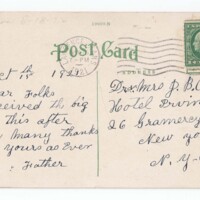 Post Card
ADDRESS
ar Folks
ceived the big
this after
Many thanks
yours as Ever
Father
Dr & Mrs J. B. C
Hotel Irvin
26 Gramercy
New yor
N. Y.